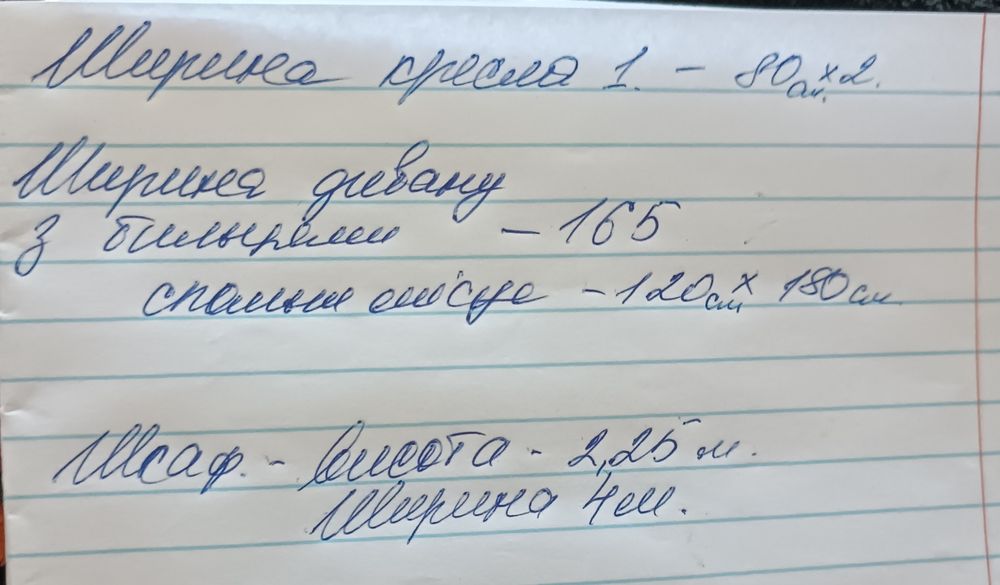 Ширина кресла 1. - 80см. х 2.
Ширина дивану
з бильцями - 165
спальне місце - 120см х 180см
Шкаф. - Висота - 2,25 м.
Ширина 4м.